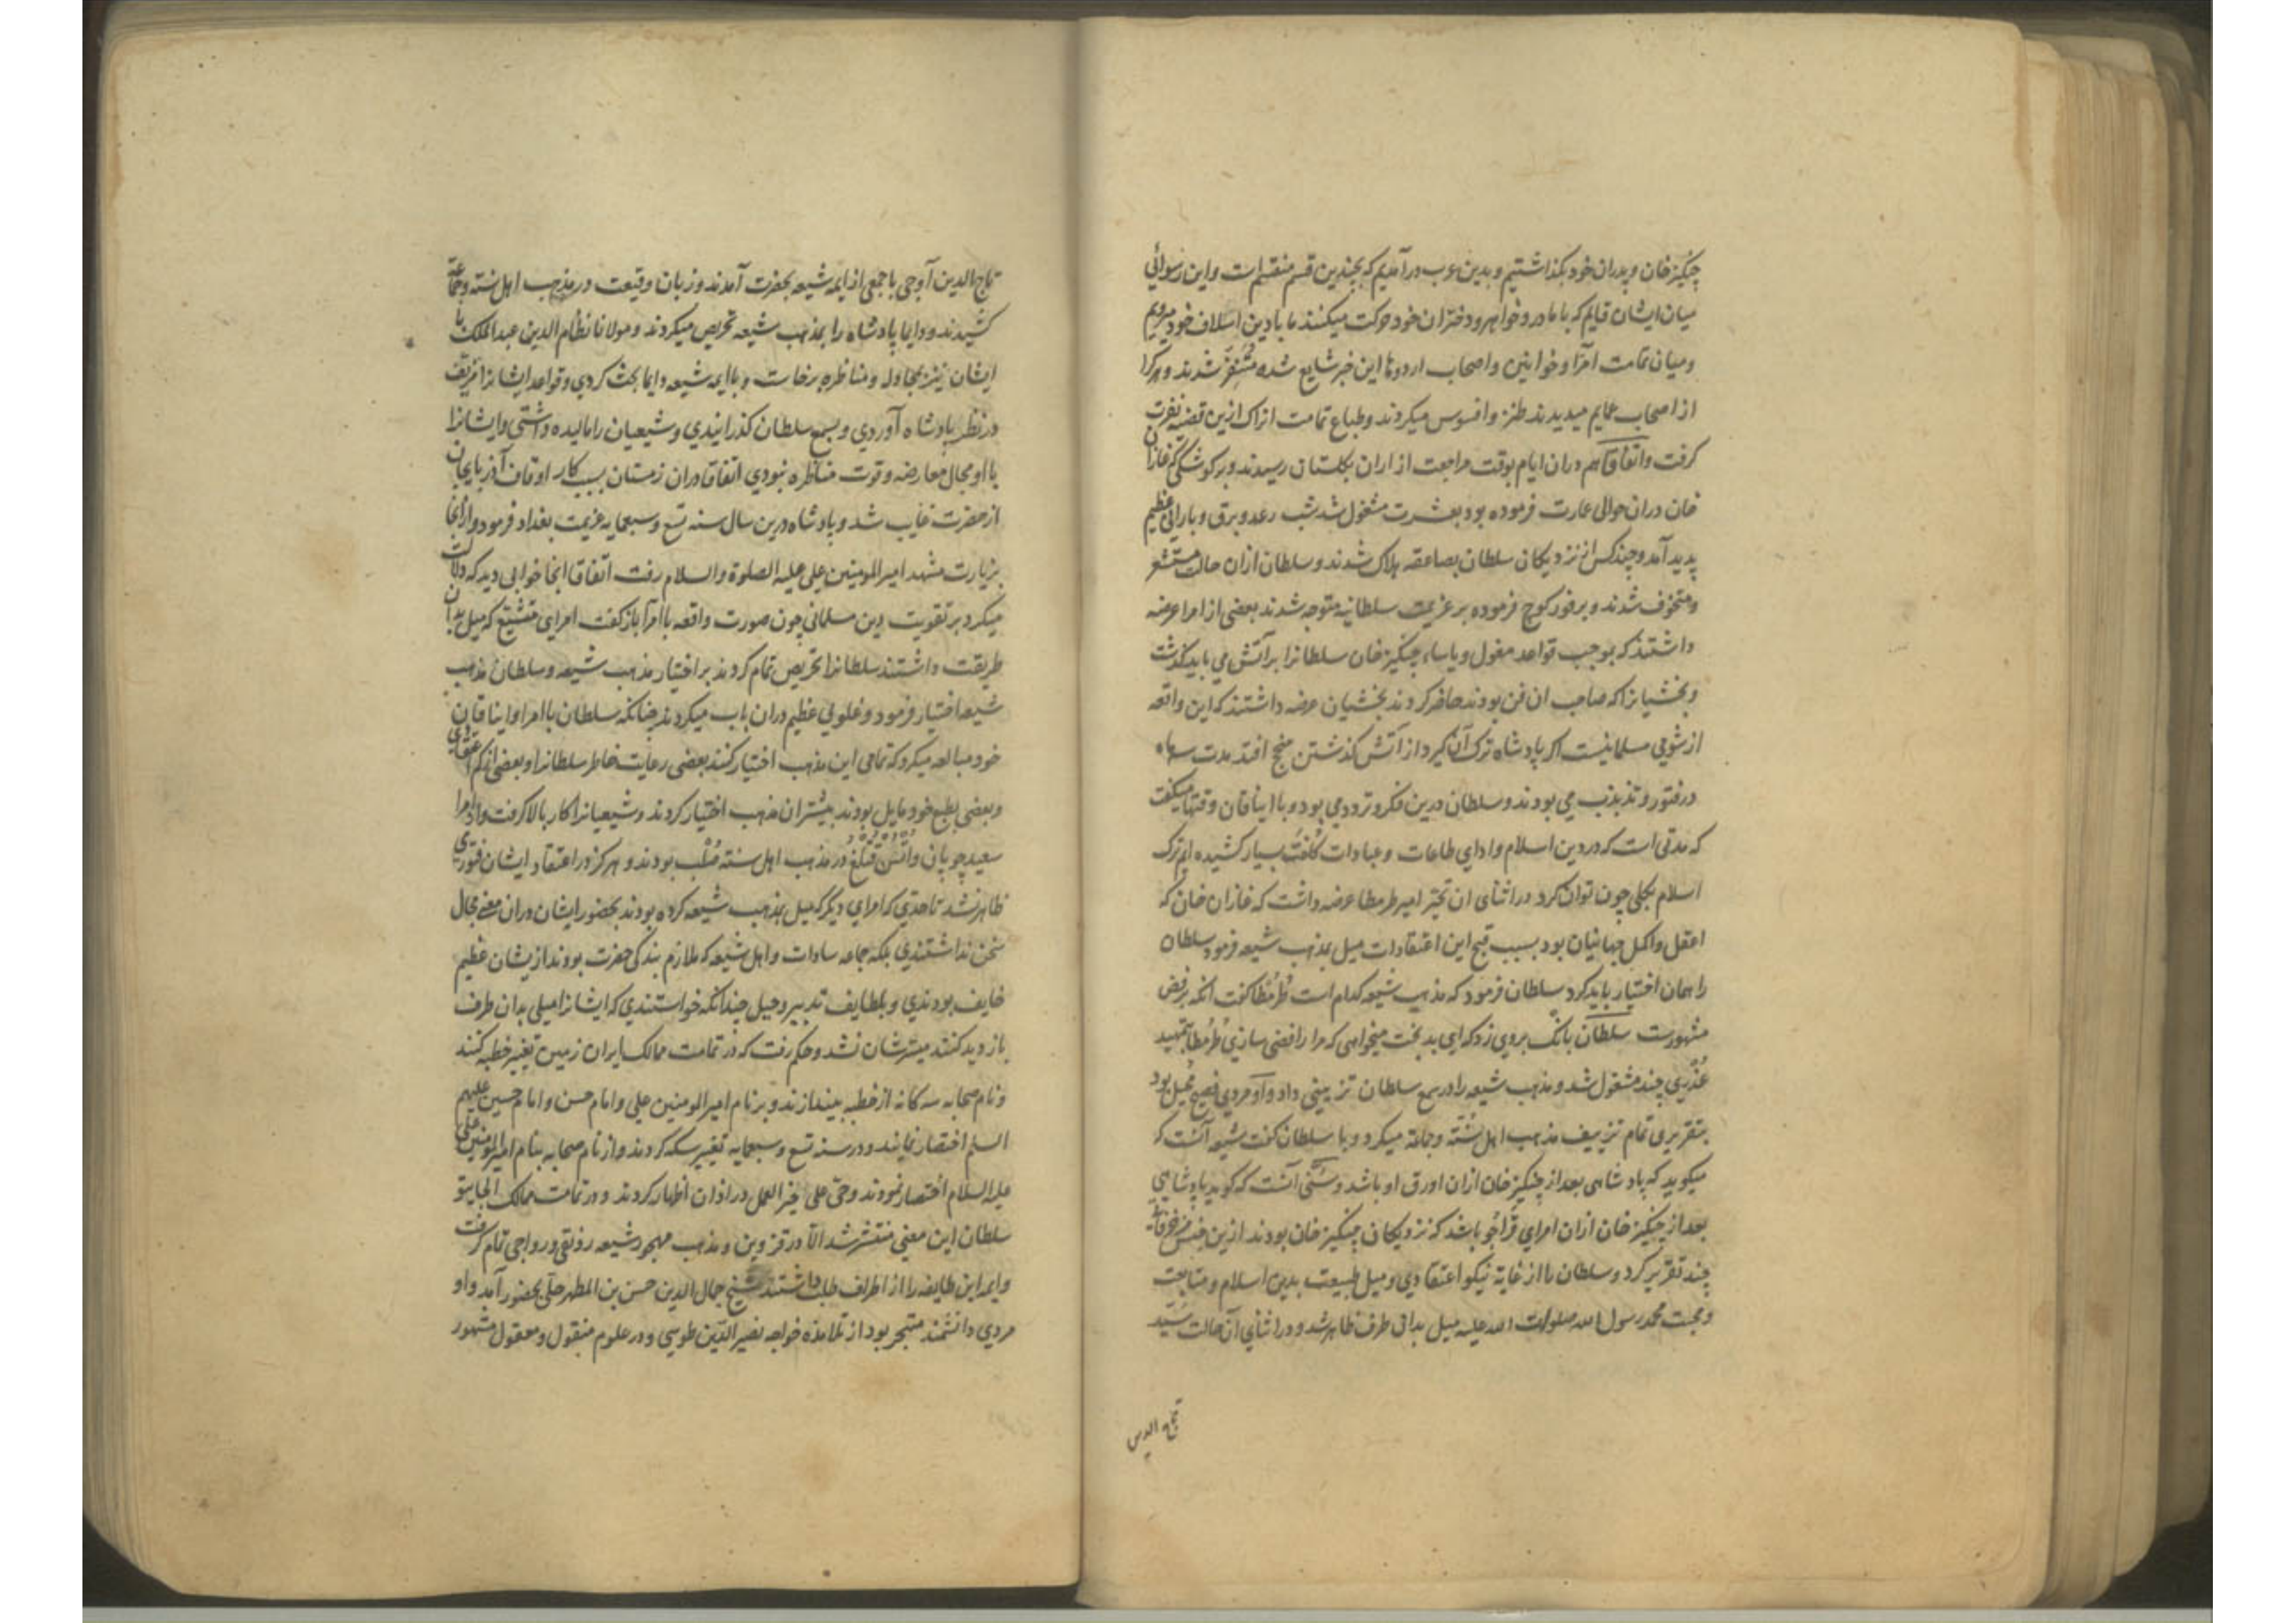 چنگیز خان و پدران خود بگذاشتیم و بدین عرب درآمدیم که بچندین قسم منقسم است و این رسوائی
میان ایشان قایم که با مادر و خواهر و دختران خود حرکت میکنند ما با دین اسلاف خود میرویم
و میان تمامت امرا و خواتین و اصحاب اردوها این خبر شایع شده متنفر شدند و هر کرا
از اصحاب عمایم میدیدند طنز و افسوس میکردند و طباع تمامت اتراک ازین قضیه نفرت
گرفت و اتفاقا هم دران ایام بوقت مراجعت از اران بگلستان رسیدند و بر کوشکی که غازان
خان دران حوالی عمارت فرموده بود بعشرت مشغول شد شب رعد و برق و بارانی عظیم
پدید آمد و چند کس از نزدیکان سلطان بصاعقه هلاک شدند و سلطان ازان حالت مستشعر
و متخوف شدند و بر فور کوچ فرموده بر عزیمت سلطانیه متوجه شدند بعضی از امرا عرضه
داشتند که بموجب قواعد مغول و یاساء چنگیز خان سلطانرا بر آتش می باید گذشت
و بخشیانرا که صاحب ان فن بودند حاضر کردند بخشیان عرضه داشتند که این واقعه
از شومی مسلمانیست اگر پادشاه ترک آن گیرد از آتش گذشتن منجح افتد مدت سه ماه
در فتور و تذبذب می بودند و سلطان درین فکر و تردد می بود و با ایناقان وقتها میگفت
که مدتی است که در دین اسلام و ادای طاعات و عبادات کلفت بسیار کشیده ایم ترک
اسلام بکلی چون توان کرد در اثنای ان تحیر امیر طرمطا عرضه داشت که غازان خان که
اعقل و اکمل جهانیان بود بسبب قبح این اعتقادات میل بمذهب شیعه فرمود سلطان
را همان اختیار باید کرد سلطان فرمود که مذهب شیعه کدام است طرمطا گفت انکه برفض
مشهورست سلطان بانگ بروی زد که ای بدبخت میخواهی که مرا رافضی سازی طرمطا بتمهید
عذری چند مشغول شد و مذهب شیعه را در سمع سلطان تزیینی داد و او مردی فصیح محیل بود
بتقریری تمام تزییف مذهب اهل سنته و جماعة میکرد و با سلطان گفت شیعه آنست که
میگوید که پادشاهی بعد از چنگیز خان ازان اورق او باشد و سنی آنست که گوید پادشاهی
بعد از چنگیز خان ازان امرای قراجو باشد که نزدیکان چنگیز خان بودند ازین جنس
چند تقریر کرد و سلطان را از غایة نیکو اعتقادی و میل طبیعت بدین اسلام و متابعت
و محبت محمد رسول الله صلوات الله علیه میل بدان طرف ظاهر شد و در اثنای آن حالت سید
تاج الدین
تاج الدین آوجی با جمعی از ایمه شیعه بحضرت آمدند و زبان وقیعت در مذهب اهل سنته و جماعة
کشیدند و دایما پادشاه را بمذهب شیعه تحریص میکردند و مولانا نظام الدین عبدالملک با
ایشان نیز بمجادله و مناظره برخاست و با ایمه شیعه دایما بحث کردی و قواعد ایشانرا مزیف
در نظر پادشاه آوردی و بسمع سلطان گذرانیدی و شیعیان را مالیده داشتی و ایشانرا
با او مجال معارضه و قوت مناظره نبودی اتفاقا دران زمستان بسبب کار اوقاف آذربایجان
از حضرت غایب شد و پادشاه درین سال سنه تسع و سبعمایه عزیمت بغداد فرمود و از انجا
بزیارت مشهد امیر المومنین علی علیه الصلوة والسلام رفت اتفاقا انجا خوابی دید که دلالت
میکرد بر تقویت دین مسلمانی چون صورت واقعه با امرا باز گفت امرای متشیع که میل بدان
طریقت داشتند سلطانرا تحریص تمام کردند بر اختیار مذهب شیعه و سلطان مذهب
شیعه اختیار فرمود و غلوئی عظیم دران باب میکردند چنانکه سلطان با امرا و ایناقان
خود مبالغه میکرد که تمامی این مذهب اختیار کنند بعضی رعایت خاطر سلطانرا و بعضی از کم اعتقادی
و بعضی بطبع خود مایل بودند بیشتر ان مذهب اختیار کردند و شیعیانرا کار بالا گرفت و از امرا
سعید چوپان و ایسن قتلغ در مذهب اهل سنته صلب بودند و هرگز در اعتقاد ایشان فتوری
ظاهر نشد تا حدی که امرای دیگر که میل بمذهب شیعه کرده بودند بحضور ایشان دران معنی مجال
سخن نداشتندی بلکه جماعه سادات و اهل شیعه که ملازم بندگی حضرت بودند از یشان عظیم
خایف بودندی و بلطایف تدبیر و حیل چندانکه خواستندی که ایشانرا میلی بدان طرف
بازدید کنند میسرشان نشد و حکم رفت که در تمامت ممالک ایران زمین تغییر خطبه کنند
و نام صحابه سه کانه از خطبه بیندازند و بر نام امیر المومنین علی و امام حسن و امام حسین علیهم
السلم اختصار نمایند و در سنه تسع و سبعمایه تغییر سکه کردند و از نام صحابه بنام امیر المومنین علی
علیه السلام اختصار نمودند و حی علی خیر العمل در اذان اظهار کردند و در تمامت ممالک الجایتو
سلطان این معنی منتشر شد الا در قزوین و مذهب مهجور شیعه رونقی و رواجی تمام گرفت
و ایمه این طایفه را از اطراف طلب داشتند شیخ جمال الدین حسن بن المطهر حلی بحضور آمد و او
مردی دانشمند متبحر بود از تلامذه خواجه نصیر الدین طوسی و در علوم منقول و معقول مشهور